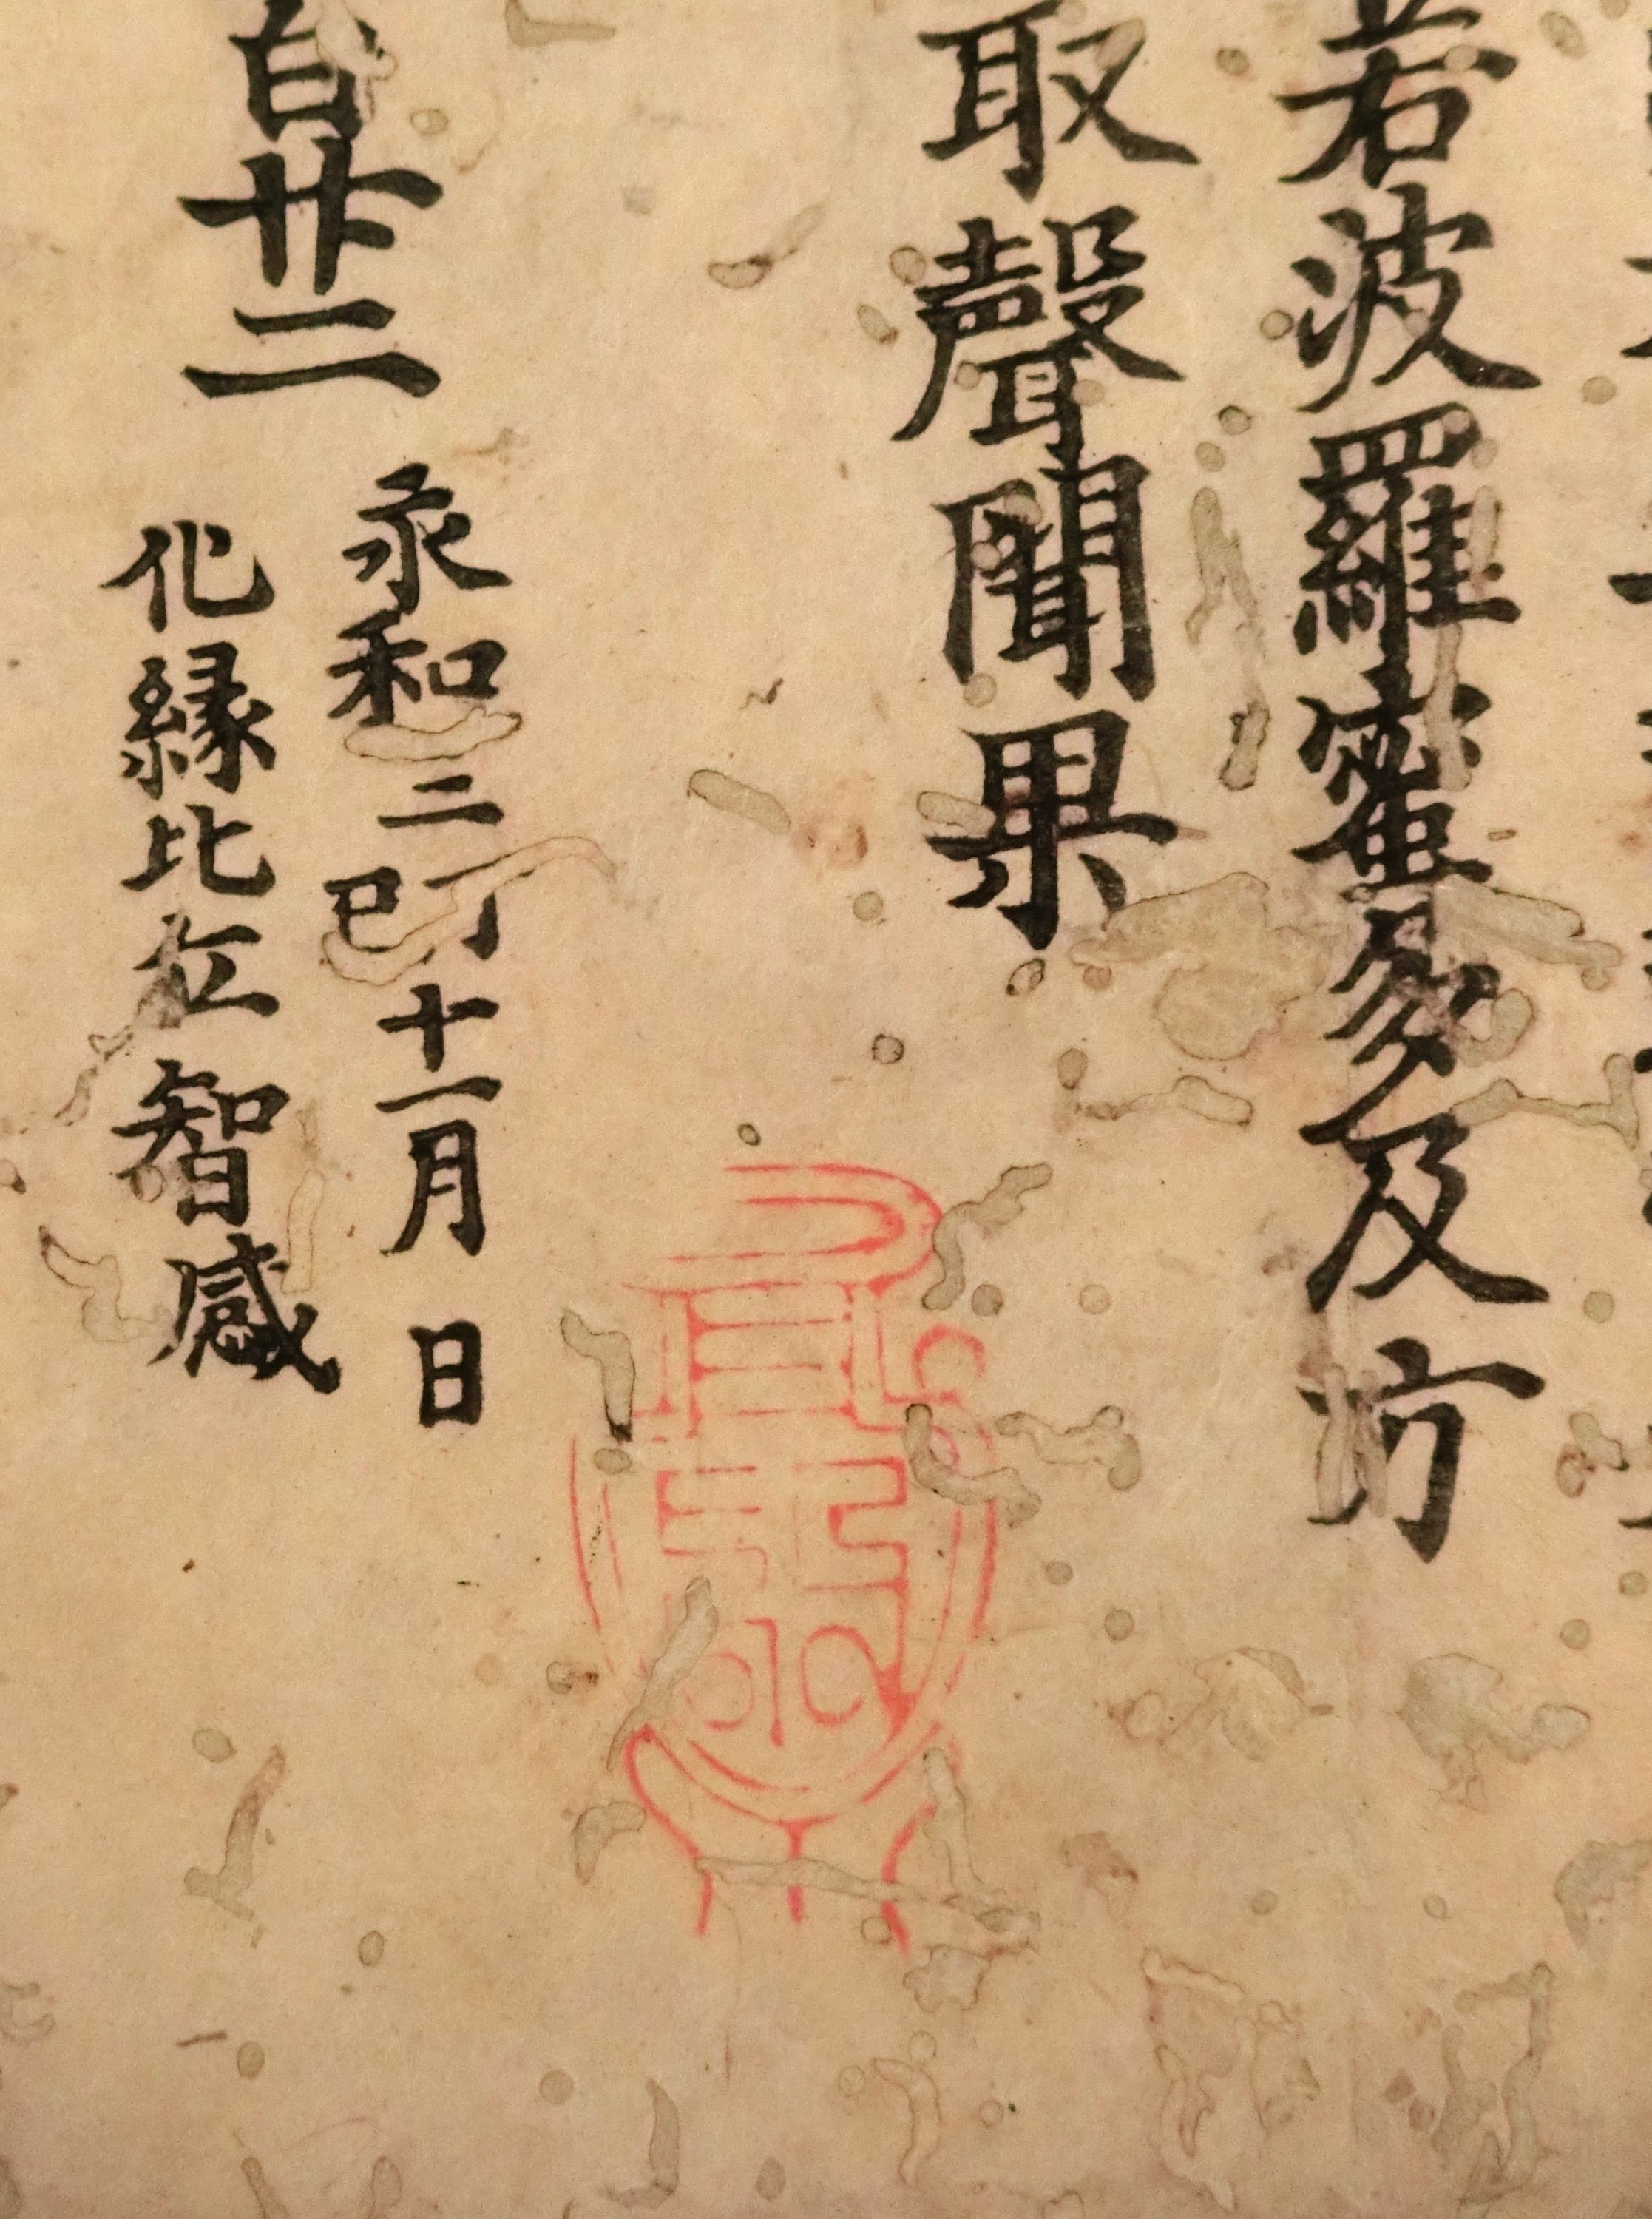 若波羅蜜多及方
取聲聞果
百廿二
永和三丁巳十一月 日
化縁比丘 智感